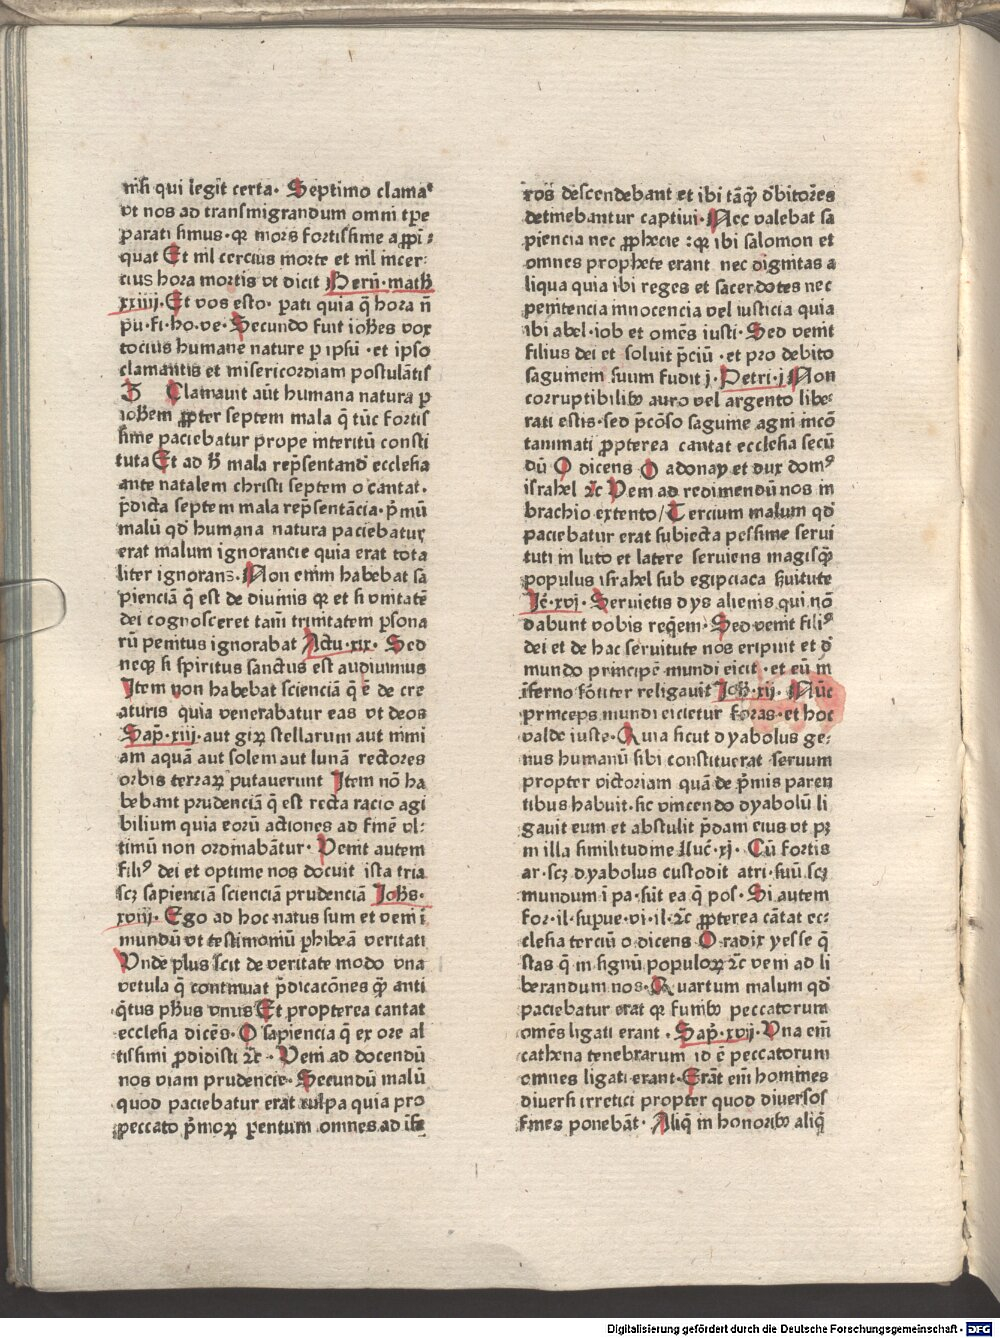 mͥhi qui legit certa· Septimo clama⸗
vt nos ad transmigrandum omni tp̄e
parati simus· qꝛ mors fortissime appͥ⸗
quat Et nͥl cercius morte et nͥl incer⸗
cius hora mortis vt dicit Bern̄· math̄
xxiiij· Et vos esto· pati quia q̄ hora n̄
pu· fi· ho· ve· Secundo fuit ioh̄es vox
tocius humane nature ꝑ ipsū · et ipso
clamantis et misericordiam postulātis
Clamauit aūt humana natura ꝑ
ioh̄em ꝓpter septem mala q̄ tūc fortis
sime paciebatur prope interitū consti
tuta Et ad h̄ mala rep̄sentand̄ ecclesia
ante natalem christi septem o cantat·
p̄dicta septem mala rep̄sentācia· p̄mū
malū qd̄ humana natura paciebatur
erat malum ignorancie quia erat tota
liter ignorans· Non enim habebat sa
pienciā q̄ est de diuinis qꝛ et si vnitatē
dei cognosceret tam̄ trinitatem ꝑsona
rū penitus ignorabat Actu· xix· Sed
neqꝫ si spiritus sanctus est audiuimus
Item non habebat scienciā q̄ ē de cre
aturis quia venerabatur eas vt deos
Sap̄· xiij· aut girꝫ stellarum aut nimi
am aquā aut solem aut lunā rectores
orbis terraꝝ putauerunt Item nō ha
bebant prudenciā q̄ est recta racio agi
bilium quia eorū actiones ad finē vl⸗
timū non ordinabātur· Venit autem
filiꝰ dei et optime nos docuit ista tria
scꝫ sapienciā scienciā prudenciā Joh̄s·
xviij· Ego ad hoc natus sum et veni ī
mundū vt testimoniū ꝑhibeā veritati
Vnde plus scit de veritate modo vna
vetula q̄ continuat p̄dicacōnes ꝙ̄ anti
qͥtus ph̄us vnus Et propterea cantat
ecclesia dicēs· O sapiencia q̄ ex ore al
tissimi ꝓdidisti ⁊c̄ · Veni ad docendū
nos viam prudencie· Secundū malū
quod paciebatur erat culpa quia pro
peccato p̄moꝝ ꝑentum omnes ad īfe
ros descendebant et ibi tāꝙ̄ dbitōres
detinebantur captiui· Nec valebat sa
piencia nec ꝓphecie : qꝛ ibi salomon et
omnes prophete erant nec dignitas a
liqua quia ibi reges et sacerdotes nec
penitencia innocencia vel iusticia quia
ibi abel· iob et omēs iusti· Sed venit
filius dei et soluit p̄ciū · et pro debito
saguinem suum fudit j· Petri· j Non
corruptibilibꝰ auro vel argento libe⸗
rati estis· sed p̄cōso saguine agni incō
taminati ꝓpterea cantat ecclesia secū
dū O dicens O adonay et dux domꝰ
israhel ⁊c Veni ad redimendū nos in
brachio extento/ Tercium malum qd̄
paciebatur erat subiecta pessime serui
tuti in luto et latere seruiens magisꝙ̄
populus israhel sub egipciaca ẜuitute
Je͛· xvj· Seruietis dys alienis qui nō
dabunt vobis reqͥem· Sed venit filiꝰ
dei et de hac seruitute nos eripuit et d̄
mundo principē mundi eicit · et eū in
īferno fortiter religauit Joh̄· xij· Nūc
princeps mundi eicietur foras· et hoc
valde iuste· Quia sicut dyabolus ge⸗
nus humanū sibi constituerat seruum
propter victoriam quā de p̄mis paren
tibus habuit· sic vincendo dyabolū li
gauit eum et abstulit p̄dam eius vt pꝫ
in illa similitudine Luc̄· xj· Cū fortis
ar· scꝫ dyabolus custodit atri· suū· scꝫ
mundum ī pa· sūt ea q̄ pos· Si autem
for· il· supue· vi· il· ⁊c̄ ꝓpterea cātat ec⸗
clesia terciū o dicens O radix yesse q̄
stas q̄ in signū populoꝝ ⁊c veni ad li
berandum nos· Quartum malum qd̄
paciebatur erat qꝛ funibꝰ peccatorum
omēs ligati erant · Sap̄· xvij· Vna em̄
cathena tenebrarum id ē peccatorum
omnes ligati erant· Erāt em̄ homines
diuersi irretici propter quod diuersos
fines ponebāt· Aliqͥ in honoribꝰ aliqͥ
Digitalisierung gefördert durch die Deutsche Forschungsgemeinschaft · DFG